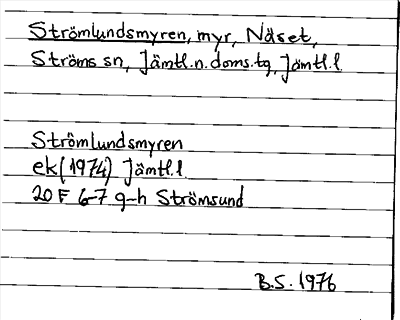 Strömlundsmyren, myr, Näset,
Ströms sn, Jämtl.n.doms.tg, Jämtl.l
Strömlundsmyren
ek(1974) Jämtl.l
20 F 6-7 g-h Strömsund
B.S. 1976